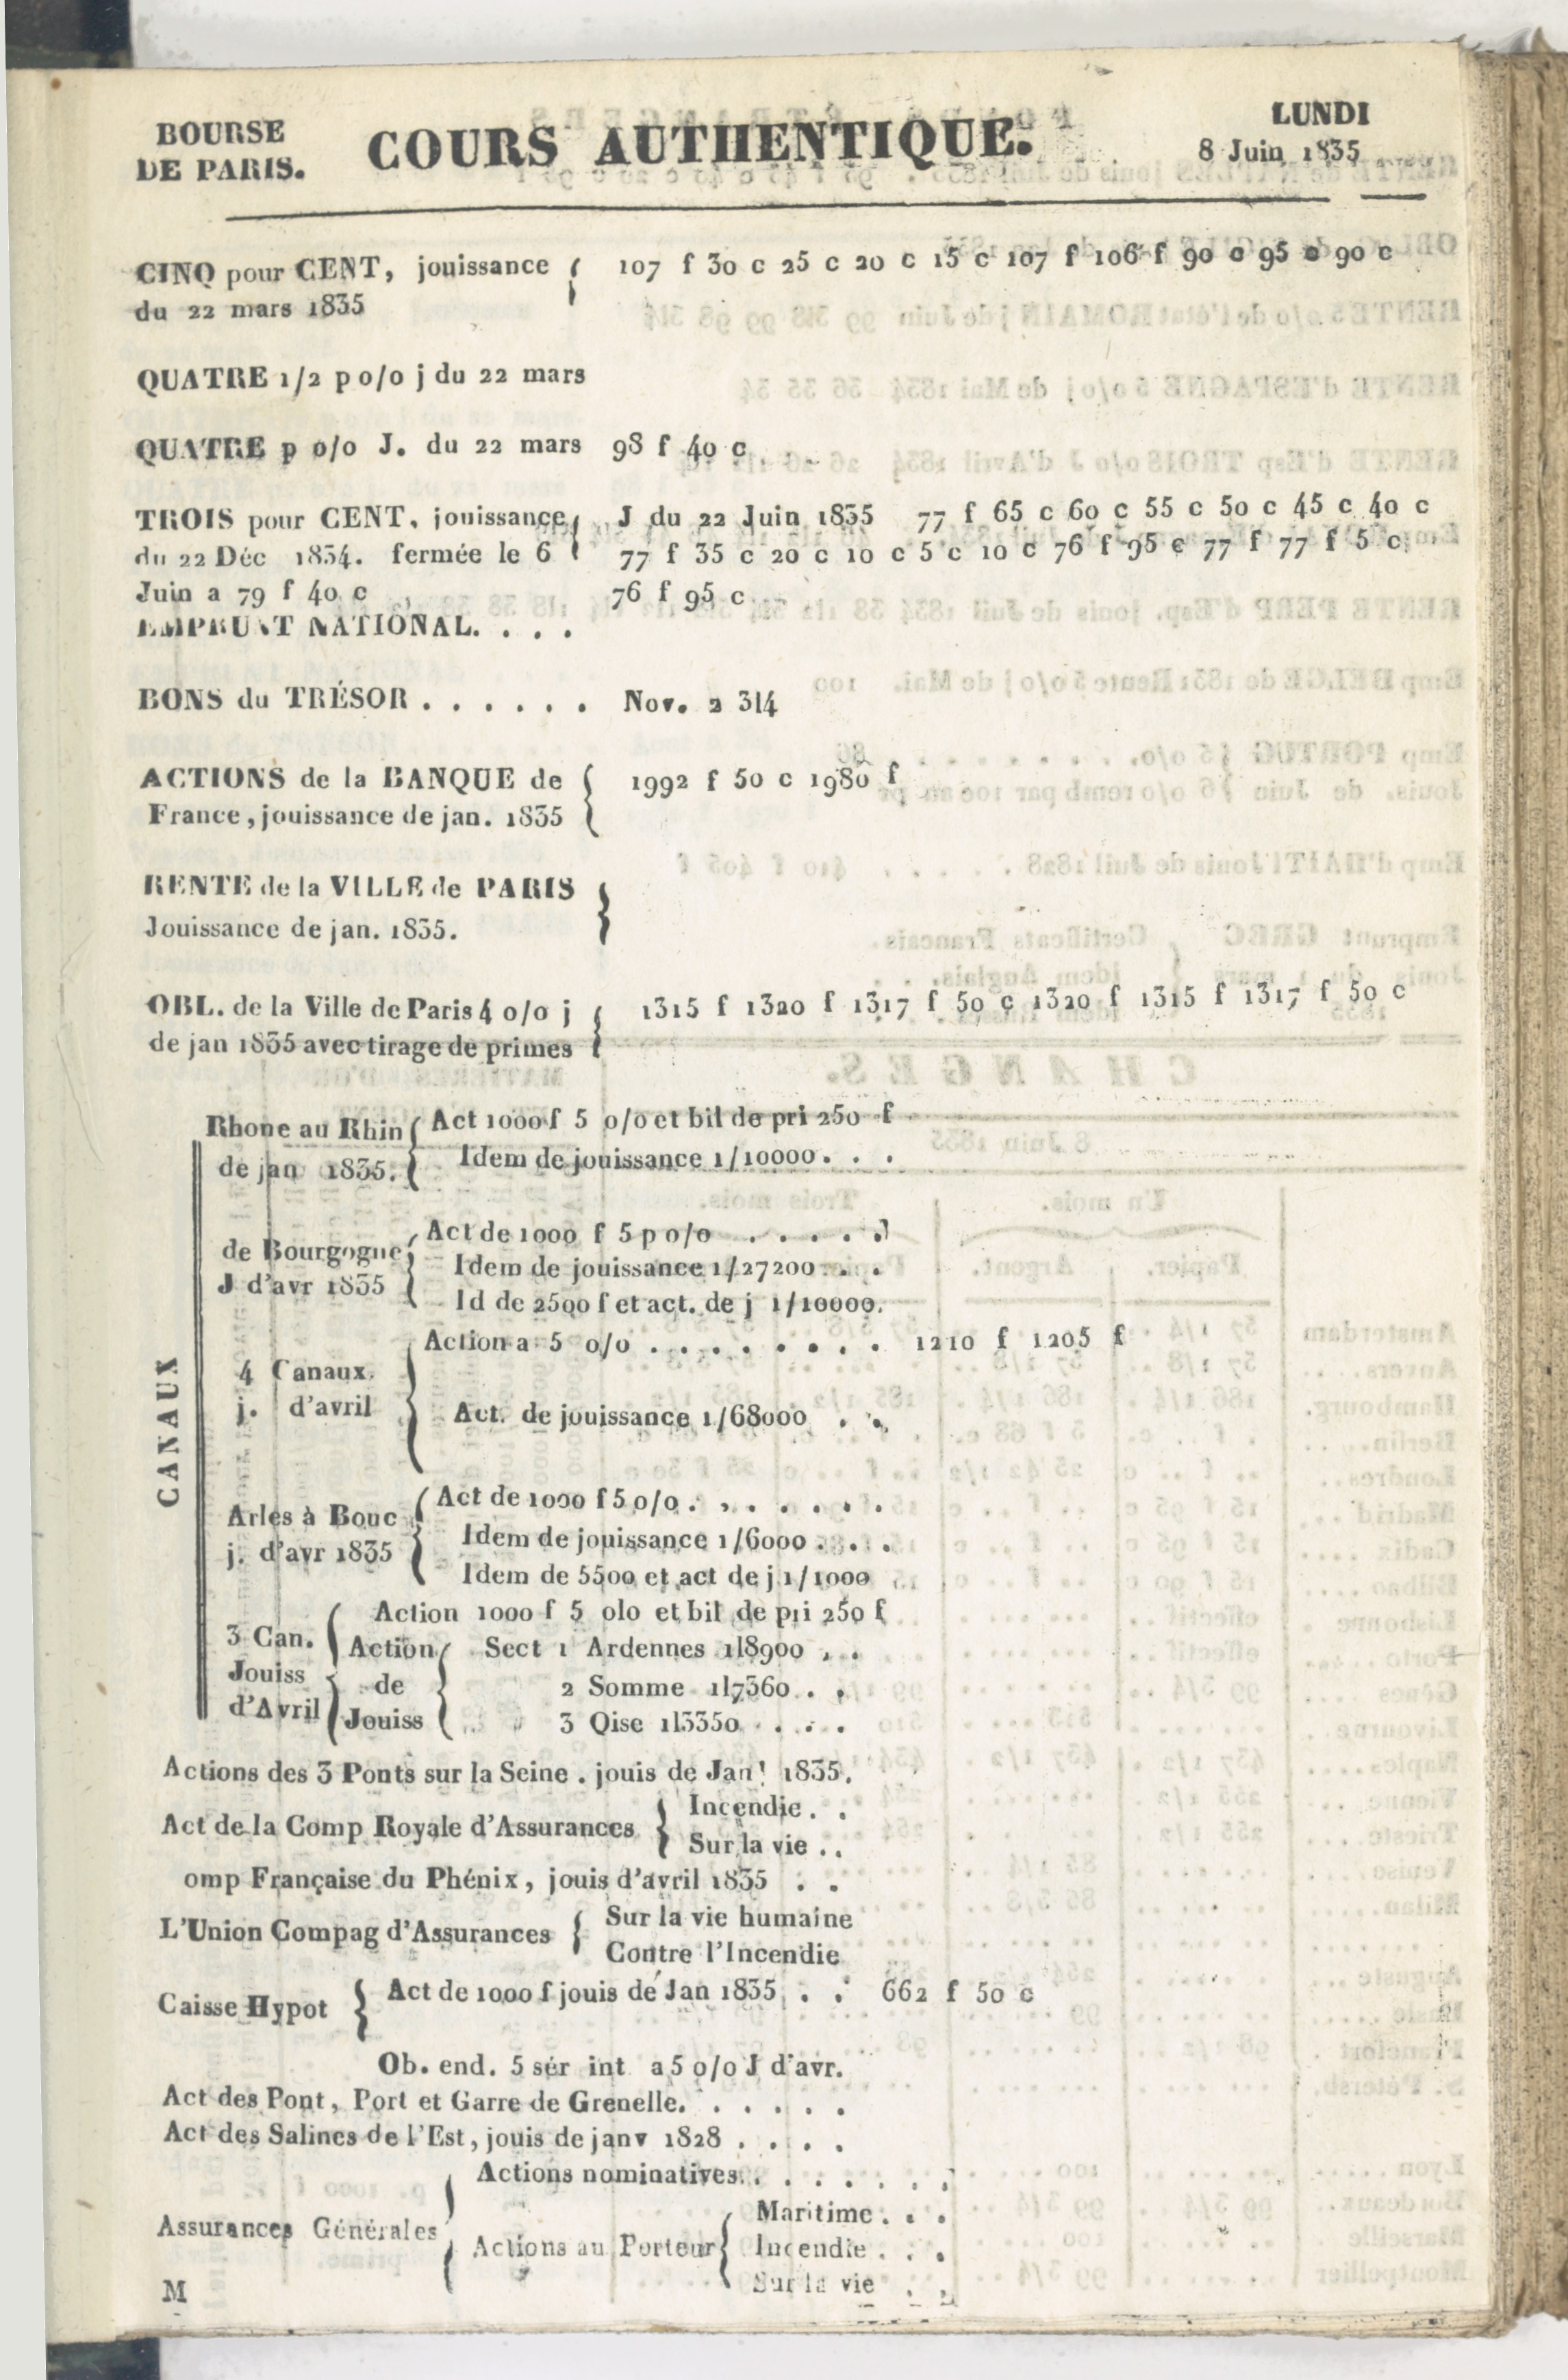 BOURSE
DE PARIS.
COURS AUTHENTIQUE.
LUNDI
8 Juin 1835
CINQ pour CENT, jouissance { 107 f 30 c 25 c 20 c 15 c 107 f 106 f 90 c 95 c 90 c
du 22 mars 1835
QUATRE 1/2 p o/o j du 22 mars
QUATRE p o/o J. du 22 mars 98 f 40 c
TROIS pour CENT, jouissance { J du 22 Juin 1835 77 f 65 c 60 c 55 c 50 c 45 c 40 c
du 22 Déc 1834. fermée le 6 77 f 35 c 20 c 10 c 5 c 10 c 76 f 95 c 77 f 77 f 5 c
Juin a 79 f 40 c 76 f 95 c
EMPRUNT NATIONAL. . . .
BONS du TRÉSOR . . . . . . Nov. 2 3/4
ACTIONS de la BANQUE de { 1992 f 50 c 1980 f
France, jouissance de jan. 1835
RENTE de la VILLE de PARIS }
Jouissance de jan. 1835.
OBL. de la Ville de Paris 4 o/o j { 1315 f 1320 f 1317 f 50 c 1320 f 1315 f 1317 f 50 c
de jan 1835 avec tirage de primes
CANAUX
Rhone au Rhin { Act 1000 f 5 o/o et bil de pri 250 f
de jan 1835. Idem de jouissance 1/10000 . . .
Act de 1000 f 5 p o/o . . . . .
de Bourgogne { Idem de jouissance 1/27200 . . .
J d'avr 1835 Id de 2500 f et act. de j 1/10000.
Action a 5 o/o . . . . . . . . . 1210 f 1205 f
4 Canaux
j. d'avril { Act. de jouissance 1/68000 . .
Act de 1000 f 5 o/o . . . . . . .
Arles à Bouc { Idem de jouissance 1/6000 . . .
j. d'avr 1835 Idem de 5500 et act de j 1/1000
Action 1000 f 5 olo et bil de pri 250 f
3 Can. { Action { Sect 1 Ardennes 1l8900 . .
Jouiss de 2 Somme 1l7360 . .
d'Avril Jouiss 3 Oise 1l3350 . . .
Actions des 3 Ponts sur la Seine . jouis de Jan! 1835.
Act de la Comp Royale d'Assurances { Incendie . .
Sur la vie . .
omp Française du Phénix, jouis d'avril 1835 . .
L'Union Compag d'Assurances { Sur la vie humaine
Contre l'Incendie
Caisse Hypot { Act de 1000 f jouis de Jan 1835 . . 662 f 50 c
Ob. end. 5 sér int a 5 o/o J d'avr.
Act des Pont, Port et Garre de Grenelle. . . . . .
Act des Salines de l'Est, jouis de janv 1828 . . . .
Actions nominatives . . . . . . .
Assurances Générales { Actions au Porteur { Maritime . . .
Incendie . . .
Sur la vie . .
M